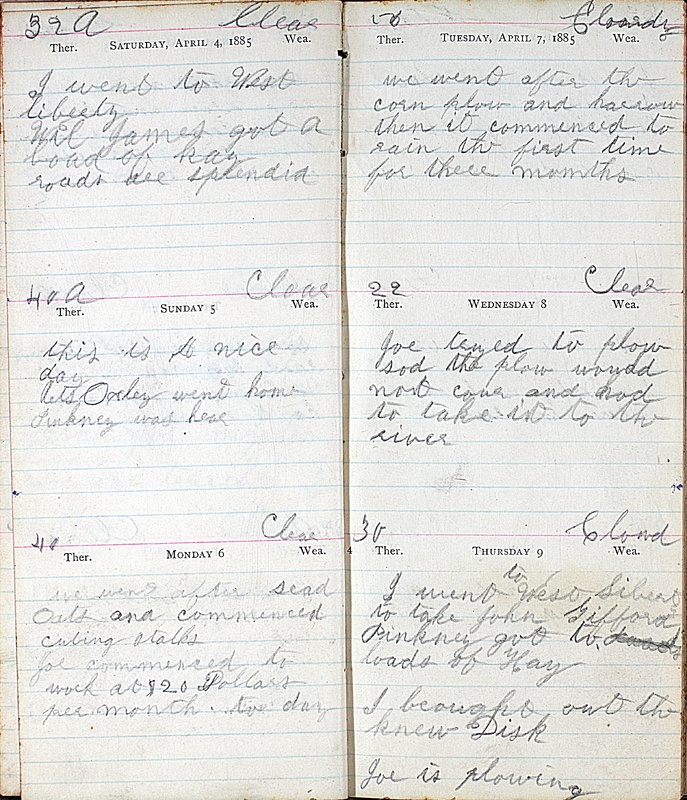 32 A Clear
Ther. SATURDAY, APRIL 4, 1885 Wea.
I went to West
liberty
Wil James got A
load of hay
roads are splendid
40 A Clear
Ther. SUNDAY 5 Wea.
this is A nice
day
Oxley went home
Pinkney was hear
40 Clear
Ther. MONDAY 6 Wea.
we went after sead
Oats and commenced
cuting stalks
Joe commenced to
work at $20 Dollars
per month. to day
Cloudy
Ther. TUESDAY, APRIL 7, 1885 Wea.
we went after the
corn plow and harrow
then it commenced to
rain the first time
for three months
22 Clear
Ther. WEDNESDAY 8 Wea.
Joe tryed to plow
sod the plow would
not cover and had
to take it to the
river
30 Cloud
4 Ther. THURSDAY 9 Wea.
I went to West Libert
to take John Gifford
Pinkney got to
loads of Hay
I brought out the
knew Disk
Joe is plowing